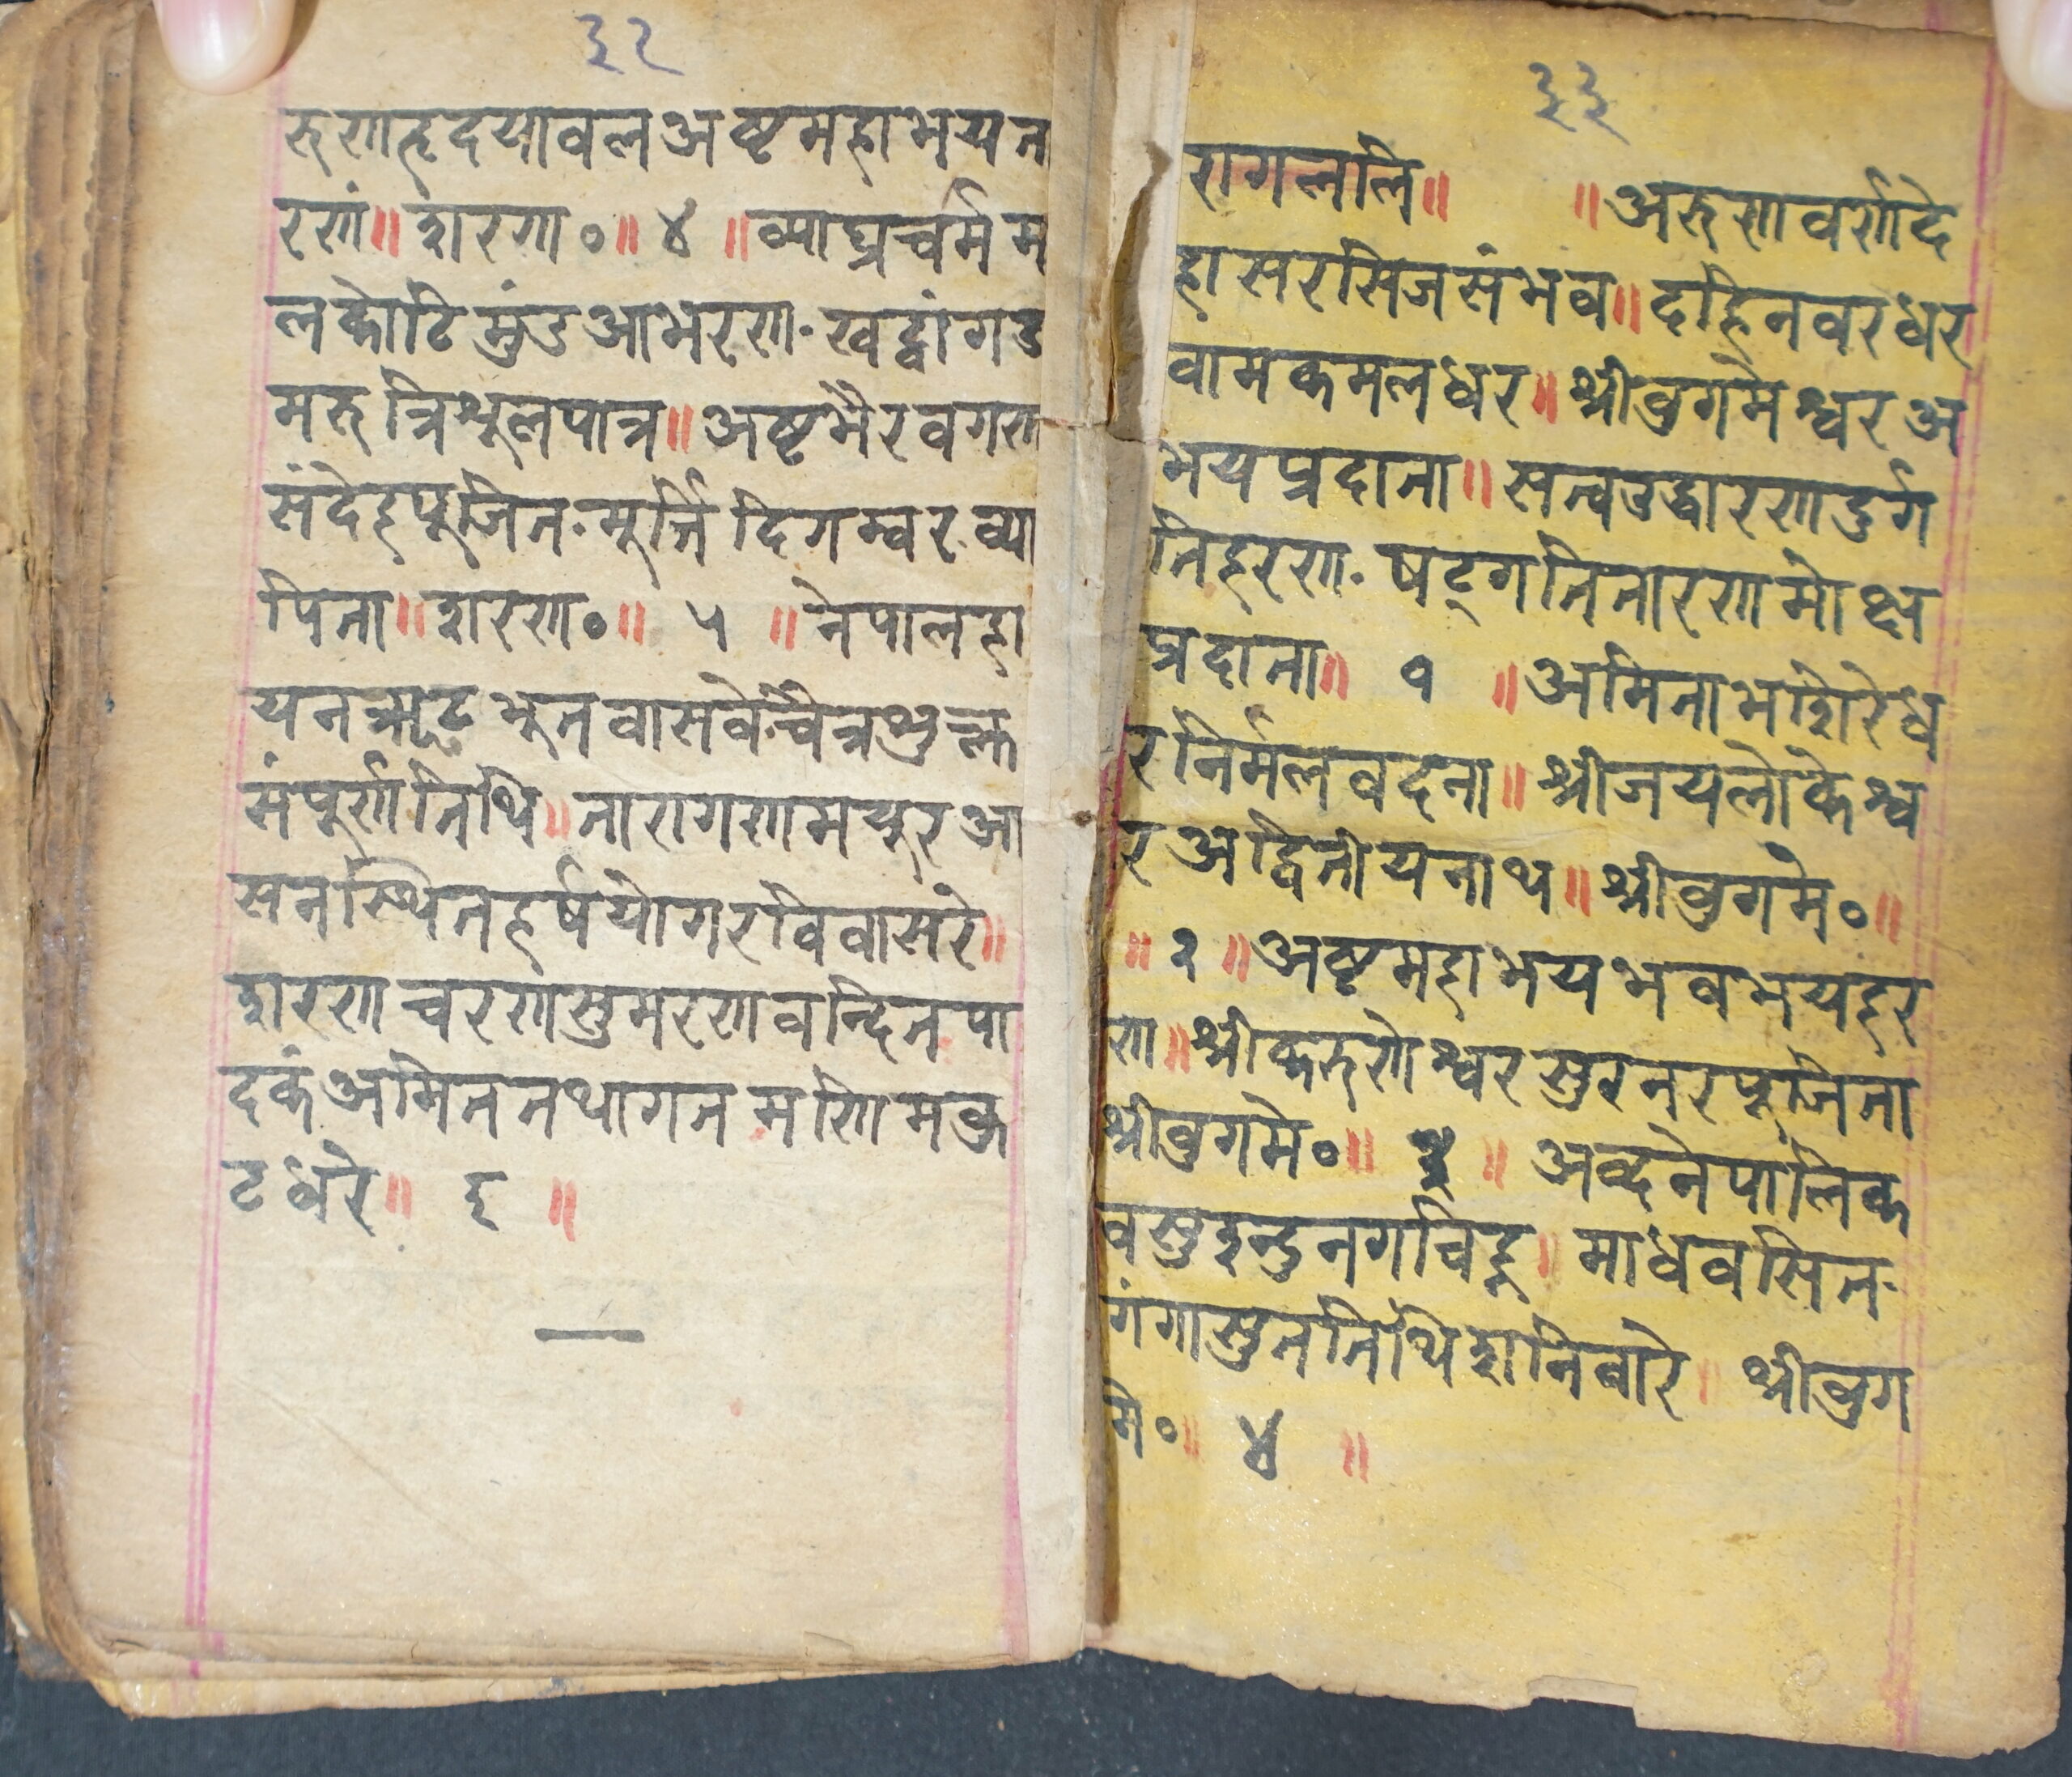 ३२
रुणाहृदयावल अष्टमहाभयत
रणं॥ शरणा०॥ ४ ॥ व्याघ्रचर्म म
लकोटि मुंड आभरण. खट्वांग ड
मरु त्रिशूलपात्र॥ अष्टभैरवगण
संदेहपूजित. मूर्त्ति दिगम्वर व्या
पिता॥ शरण०॥ ५ ॥ नेपालहा
यन भूतवासवे. चैत्रशुक्ल
संपूर्ण तिथि॥ तारागण मयूर आ
सनस्थित हर्षयोग रविवासरे॥
शरण चरण सुमरण वन्दित पा
दकं अमित तथागत मणि मकु
ट धरं॥ ६ ॥
३३
राग ललि॥ ॥ अरुण वर्ण दे
हा सरसिज संभव॥ दहिन वरधर
वाम कमलधर॥ श्री वुगमेश्वर अ
भयप्रदाता॥ सत्वउद्धारण दुर्ग
तिहरण. षट्गतितारण मोक्ष
प्रदाता॥ १ ॥ अमिताभ शिरे ध
र निर्मल वदना॥ श्री जय लोकेश्व
र अद्वितीय नाथ॥ श्री वुगमे०॥
॥ २ ॥ अष्टमहाभय भवभयहर
ण॥ श्री करुणेश्वर सुरनरपूजिता
श्री वुगमे०॥ ३ ॥ अव्द नेपालिक
वसु इन्दु नर्ग विदू॥ माधव सित.
गंगासुत तिथि शनिवारे॥ श्री वुग
मे०॥ ४ ॥